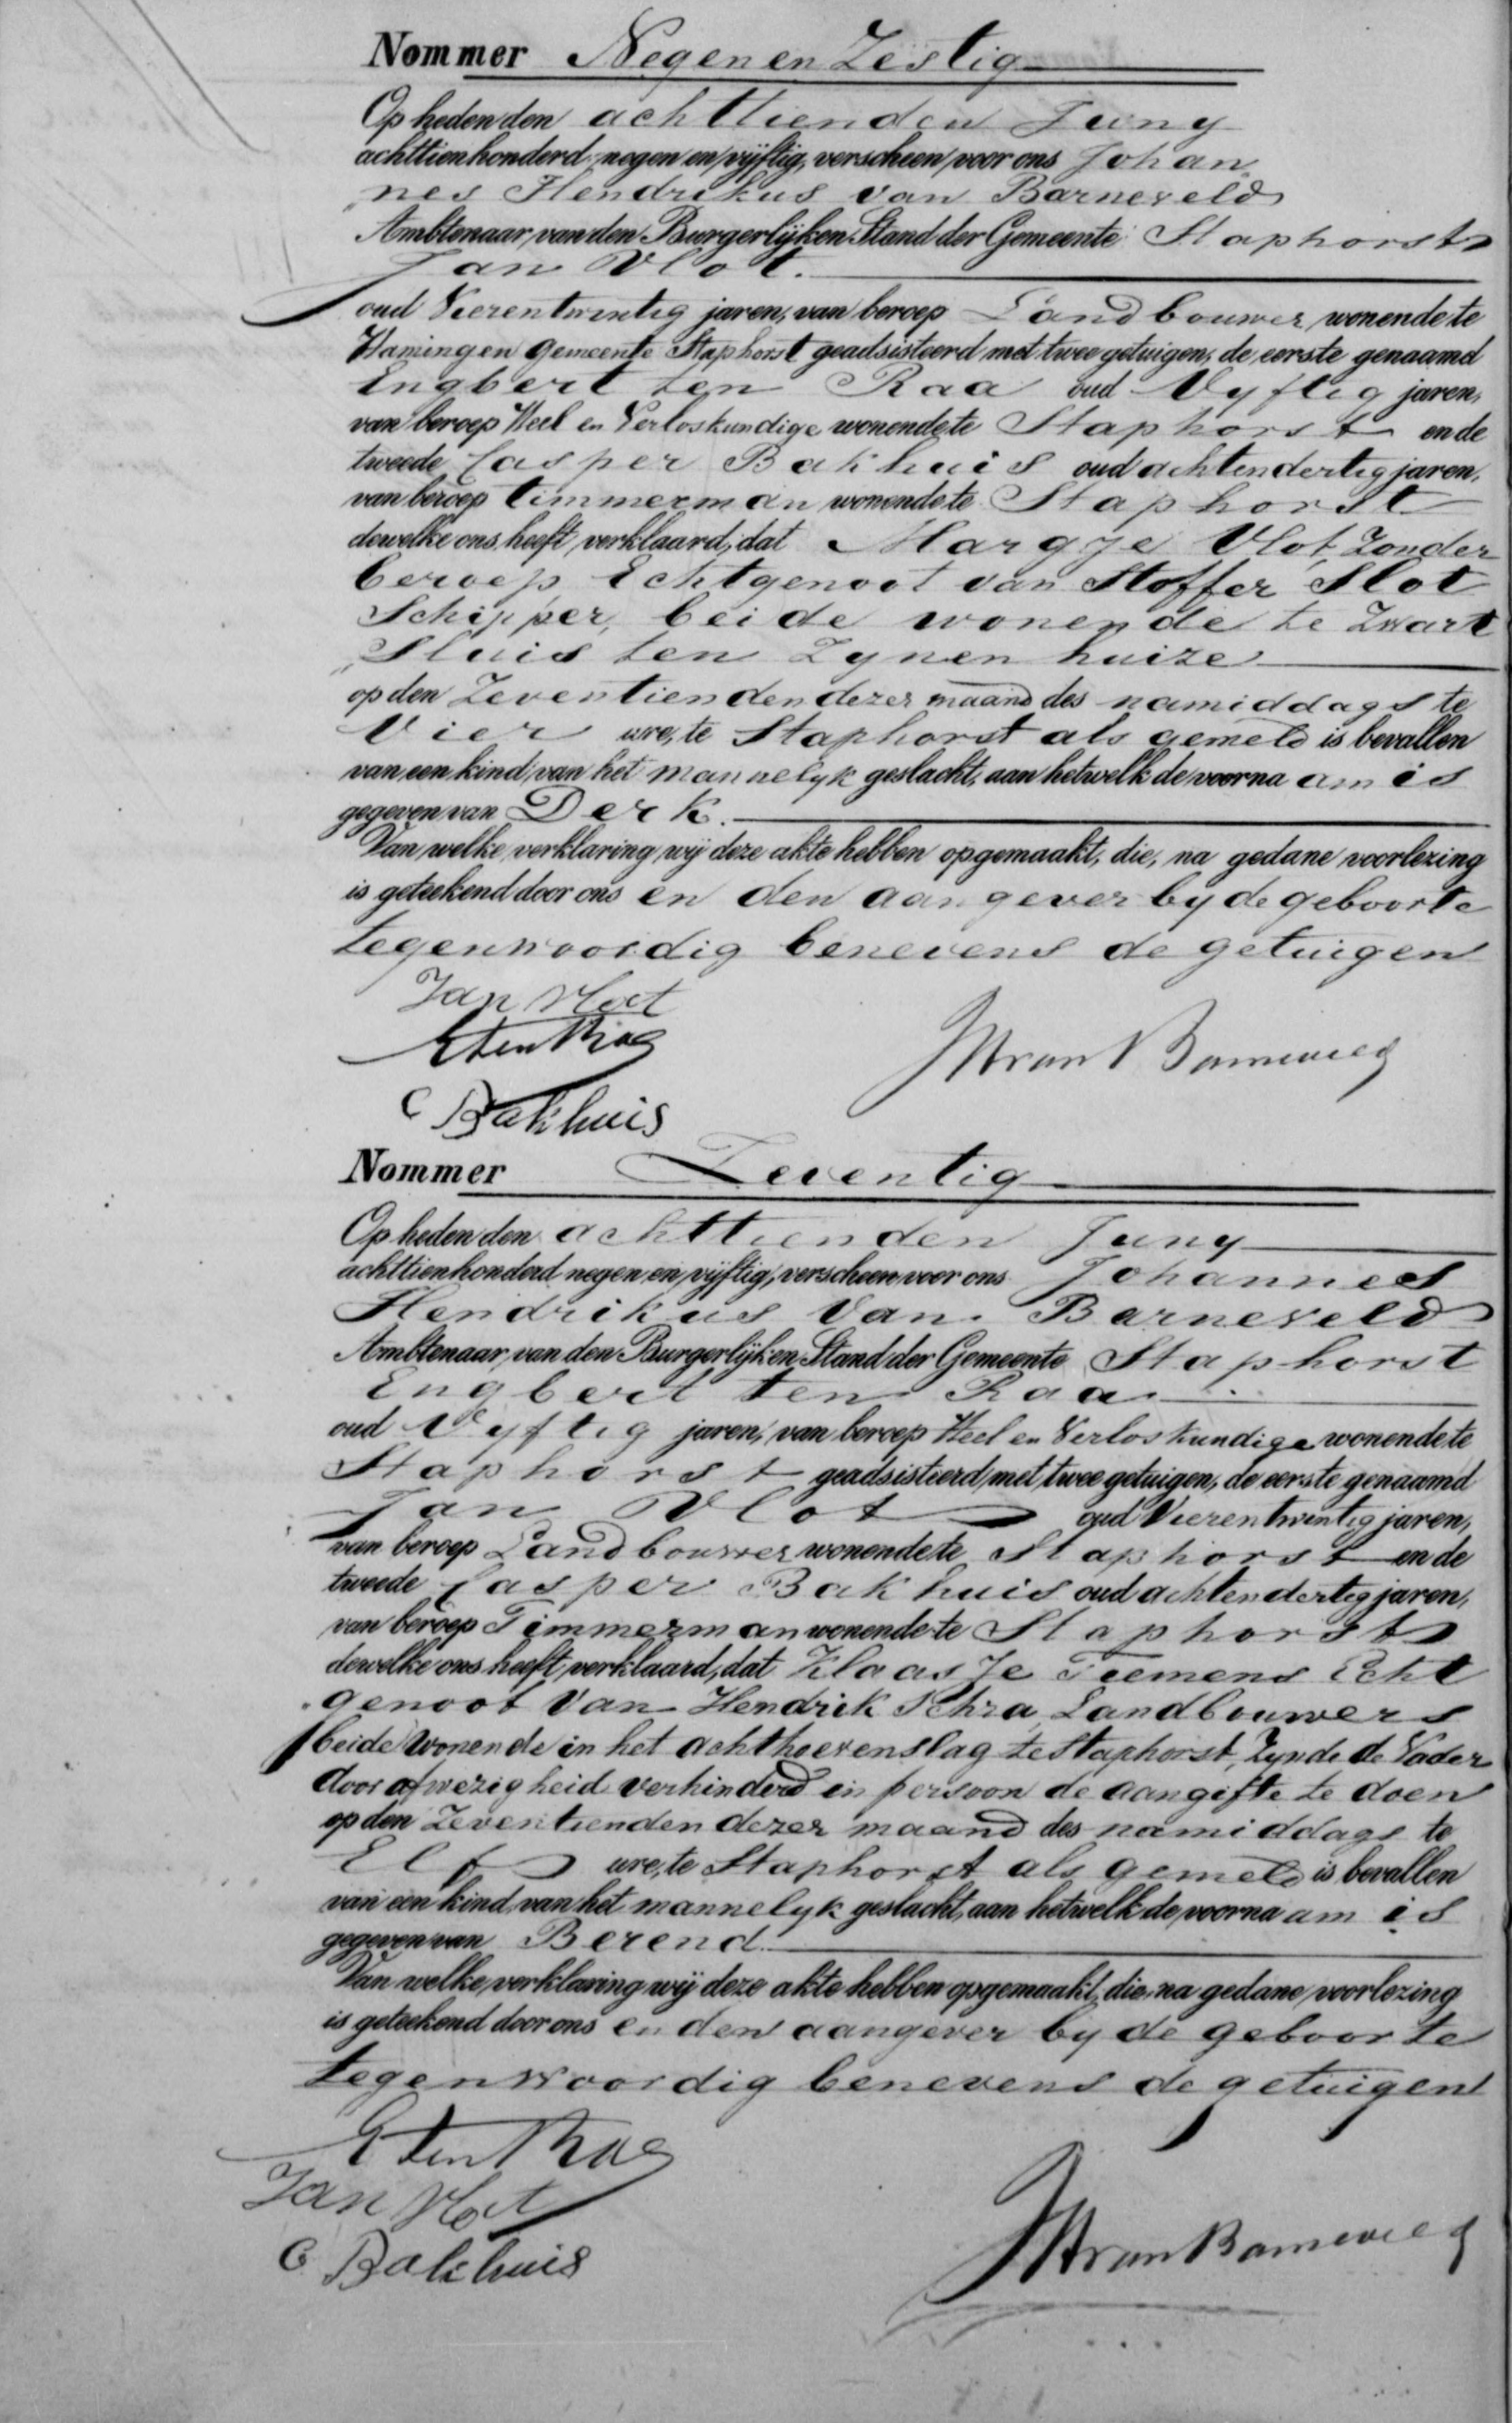 Nommer Negen en Zestig
Op heden den achttienden Juny
achttienhonderd negen en vijftig, verscheen voor ons Johan
„nes Hendrikus van Barneveld
Ambtenaar van den Burgerlijken Stand der Gemeente Staphorst
Jan Vlot.
oud Vierentwintig jaren, van beroep Landbouwer wonende te
Hamingen Gemeente Staphorst geadsisteerd met twee getuigen, de eerste genaamd
Engbert ten Raa oud Vyftig jaren,
van beroep Heel en Verloskundige wonende te Staphorst en de
tweede Casper Bakhuis oud achtendertig jaren,
van beroep timmerman wonende te Staphorst
dewelke ons heeft verklaard, dat Margje Vlot, Zonder
beroep Echtgenoot van Stoffer Slot
Schipper, beide wonende te Zwart
„Sluis ten Zynen huize
op den Zeventienden dezer maand des namiddags te
Vier ure, te Staphorst als gemeld is bevallen
van een kind van het mannelyk geslacht, aan hetwelk de voornaam is
gegeven van Derk.
Van welke verklaring wij deze akte hebben opgemaakt, die, na gedane voorlezing
is geteekend door ons en den aangever by de geboorte
tegenwoordig benevens de getuigen
Jan Vlot
E ten Raa
C Bakhuis
JH van Barneveld
Nommer Zeventig
Op heden den achttienden Juny
achttienhonderd negen en vijftig, verscheen voor ons Johannes
Hendrikus van Barneveld
Ambtenaar van den Burgerlijken Stand der Gemeente Staphorst
Engbert ten Raa
oud Vyftig jaren, van beroep Heel en Verloskundige wonende te
Staphorst geadsisteerd met twee getuigen, de eerste genaamd
Jan Vlot oud Vierentwintig jaren,
van beroep Landbouwer wonende te Staphorst en de
tweede Casper Bakhuis oud achtendertig jaren,
van beroep Timmerman wonende te Staphorst
dewelke ons heeft verklaard, dat Klaasje Tiemens Echt
genoot van Hendrik Schra, Landbouwers
beide wonende in het achthoevenslag te Staphorst, Zynde de Vader
door afwezigheid verhinderd in persoon de aangifte te doen
op den Zeventienden dezer maand des namiddags te
Elf ure, te Staphorst als gemeld is bevallen
van een kind van het mannelyk geslacht, aan hetwelk de voornaam is
gegeven van Berend.
Van welke verklaring wij deze akte hebben opgemaakt, die, na gedane voorlezing
is geteekend door ons en den aangever by de geboorte
tegenwoordig benevens de getuigen
E ten Raa
Jan Vlot
C Bakhuis
JH van Barneveld